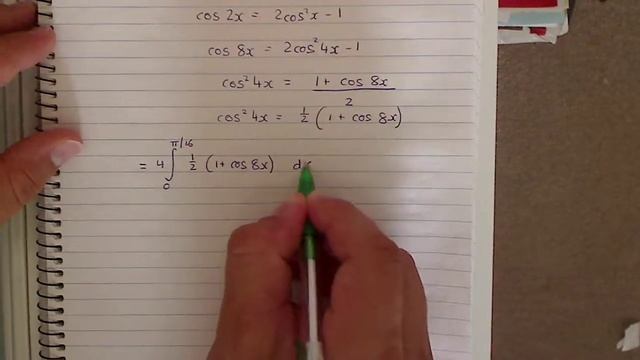 cos 2x = 2cos²x - 1
cos 8x = 2cos²4x - 1
cos²4x = (1 + cos 8x)/2
cos²4x = ½ (1 + cos 8x)
= 4 ∫₀^(π/16) ½ (1 + cos 8x) dx